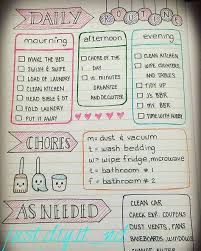 DAILY ROUTINE
mourning
MAKE THE BED
SWISH & SWIPE
LOAD OF LAUNDRY
CLEAN KITCHEN
READ BIBLE & DT
FOLD LAUNDRY
PUT IT AWAY
afternoon
CHORE OF THE
DAY
15 MINUTES
ORGANIZE
AND DECLUTTER
evening
CLEAN KITCHEN
WIPE COUNTERS
AND TABLES
TIDY UP
15 MIN
TIME WITH HUBBY
CHORES
m = dust & vacuum
t = wash bedding
w = wipe fridge, microwave
t = bathroom # 1
f = bathroom # 2
AS NEEDED
CLEAN CAR
CHECK EXP. COUPONS
DUST VENTS, FANS
BASEBOARDS, WINDOWS
just diy it